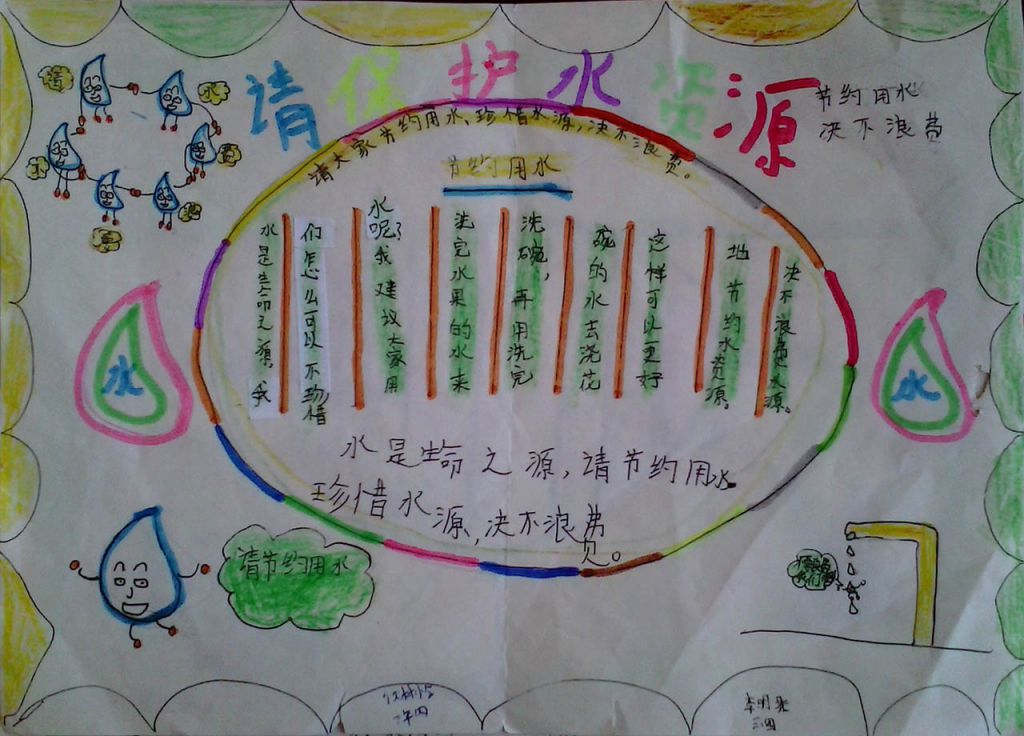 请保护水资源
节约用水
决不浪费
请大家节约用水,珍惜水源,决不浪费。
节约用水
水是生命之源,我
们怎么可以不珍惜
水呢?我建议大家用
洗完水果的水来
洗碗,再用洗完
碗的水去浇花
这样可以更好
地节约水资源。
决不浪费水源。
水是生命之源,请节约用水
珍惜水源,决不浪费。
水
水
请节约用水
请
水
费
李明
三四